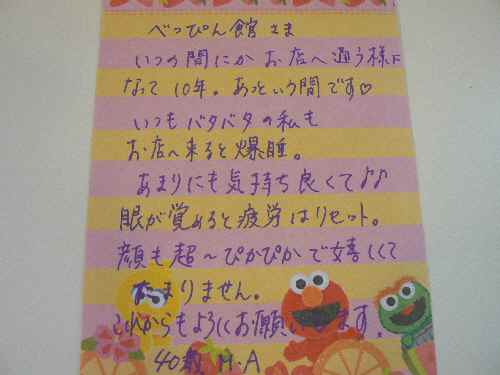 べっぴん館さま
いつの間にかお店へ通う様に
なって10年。あっという間です♡
いつもバタバタの私も
お店へ来ると爆睡。
あまりにも気持ち良くて♪♪
眼が覚めると疲労はリセット。
顔も超〜ぴかぴかで嬉しくて
たまりません。
これからもよろしくお願いします。
40歳 M.A